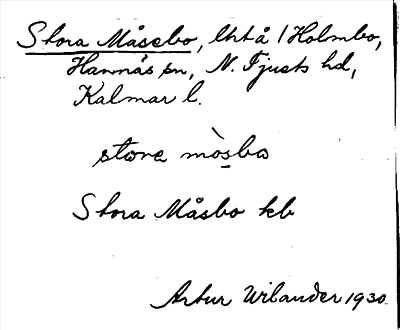 Stora Måsebo, lht å /Holmbo,
Hannäs sn, N. Tjusts hd,
Kalmar l.
stora mòsba
Stora Måsbo kb
Artur Wilander 1930.